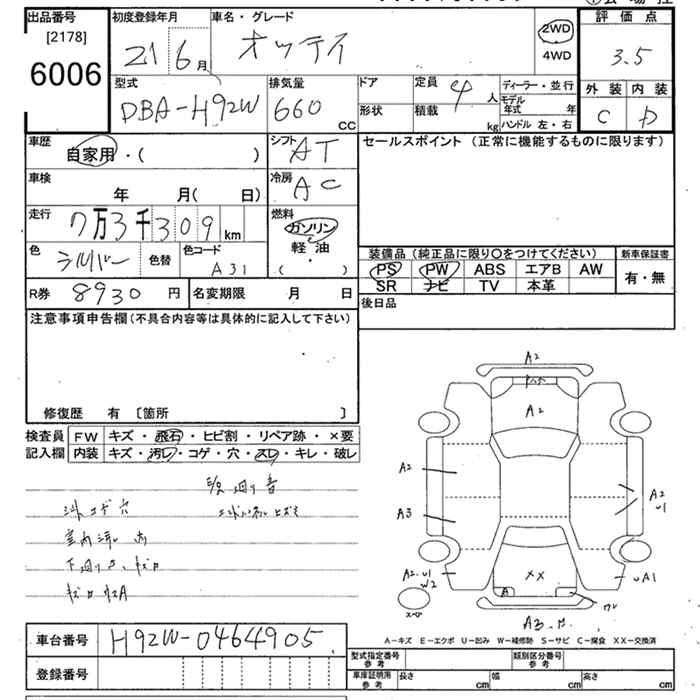 出品番号 初度登録年月 車名・グレード 2WD 評価点
[2178] 21 6月 オッティ 4WD 3.5
6006
型式 排気量 ドア 定員 4人 ディーラー・並行 外装 内装
DBA-H92W 660cc 形状 積載 kg モデル年式 年 C D
ハンドル 左・右
車歴 自家用・( ) シフト AT セールスポイント (正常に機能するものに限ります)
車検 年 月( 日) 冷房 AC
走行 7万3千309km 燃料 ガソリン
軽油
( )
色 シルバー 色替 色コード A31 装備品 (純正品に限り○をつけてください) 新車保証書
PS PW ABS エアB AW 有・無
SR ナビ TV 本革
R券 8930円 名変期限 月 日 後日品
注意事項申告欄(不具合内容等は具体的に記入して下さい)
修復歴 有 〔箇所 〕
検査員 FW キズ・飛石・ヒビ割・リペア跡・×要
記入欄 内装 キズ・汚レ・コゲ・穴・スレ・キレ・破レ
シートコゲ穴
室内汚れ
A2
A2
A2
A3
A2
U1
A2.U1
W2
XX
A
UA1
A3
A-キズ E-エクボ U-凹み W-補修跡 S-サビ C-腐食 XX-交換済
車台番号 H92W-0464905
登録番号
型式指定番号 参考 類別区分番号 参考
車庫証明用 参考 長さ cm 幅 cm 高さ cm